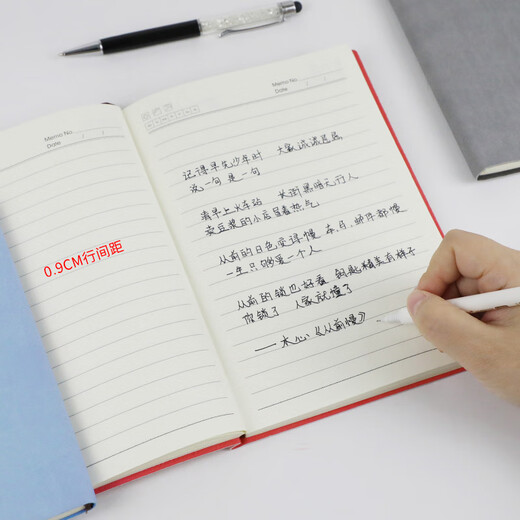 Memo No.
Date / /
0.9CM行间距
Memo No.
Date / /
记得早先少年时 大家诚诚恳恳
说一句 是一句
清早上火车站 长街黑暗无行人
卖豆浆的小店冒着热气
从前的日色变得慢 车、马、邮件都慢
一生只够爱一个人
从前的锁也好看 钥匙精美有样子
你锁了 人家就懂了
—— 木心《从前慢》